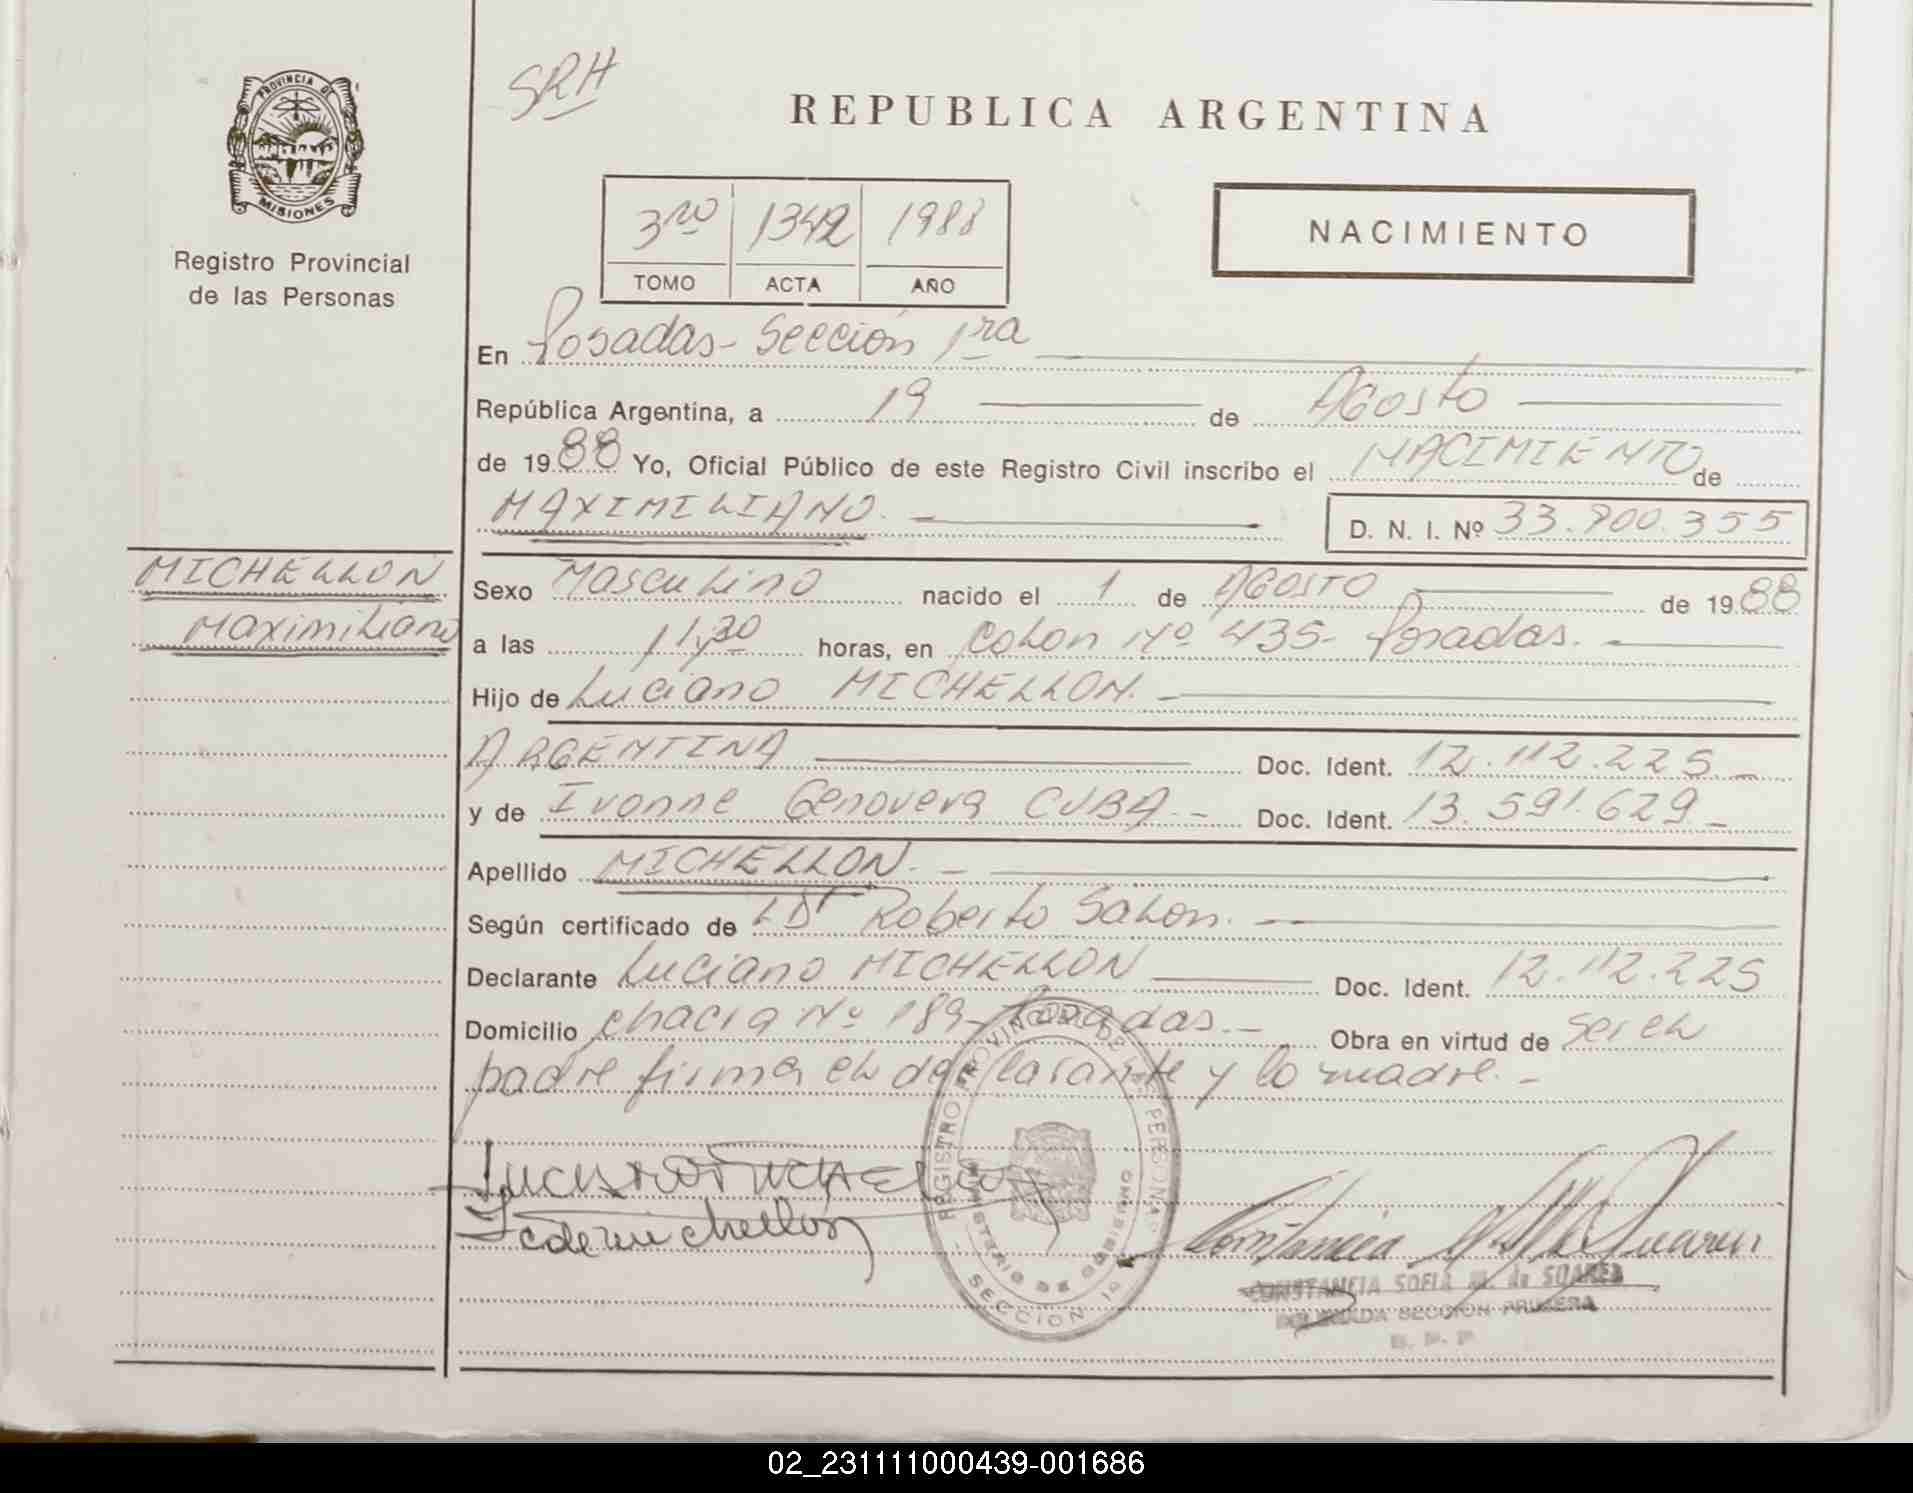 PROVINCIA DE
MISIONES
Registro Provincial
de las Personas
SRH
REPUBLICA ARGENTINA
3ro 1342 1988
TOMO ACTA AÑO
NACIMIENTO
En Posadas - Sección 1ra
República Argentina, a 19 de Agosto
de 1988 Yo, Oficial Público de este Registro Civil inscribo el NACIMIENTO de
MAXIMILIANO. - D. N. I. Nº 33.900.355
MICHELLON
Maximiliano
Sexo Masculino nacido el 1 de AGOSTO de 1988
a las 11,30 horas, en Colon Nº 435 - Posadas. -
Hijo de Luciano MICHELLON. -
ARGENTINA Doc. Ident. 12.112.225 -
y de Ivonne Genoveva CUBA. - Doc. Ident. 13.591.629 -
Apellido MICHELLON. -
Según certificado de Dr Roberto Salon. -
Declarante Luciano MICHELLON Doc. Ident. 12.112.225
Domicilio chacra Nº 189 - Posadas. - Obra en virtud de ser el
padre firma el declarante y la madre. -
REGISTRO PROVINCIAL DE LAS PERSONAS
MINISTERIO DE GOBIERNO
SECCION 1a
CONSTANCIA SOFIA M. de SUAREZ
DELEGADA SECCION PRIMERA
R. P. P.
02_231111000439-001686